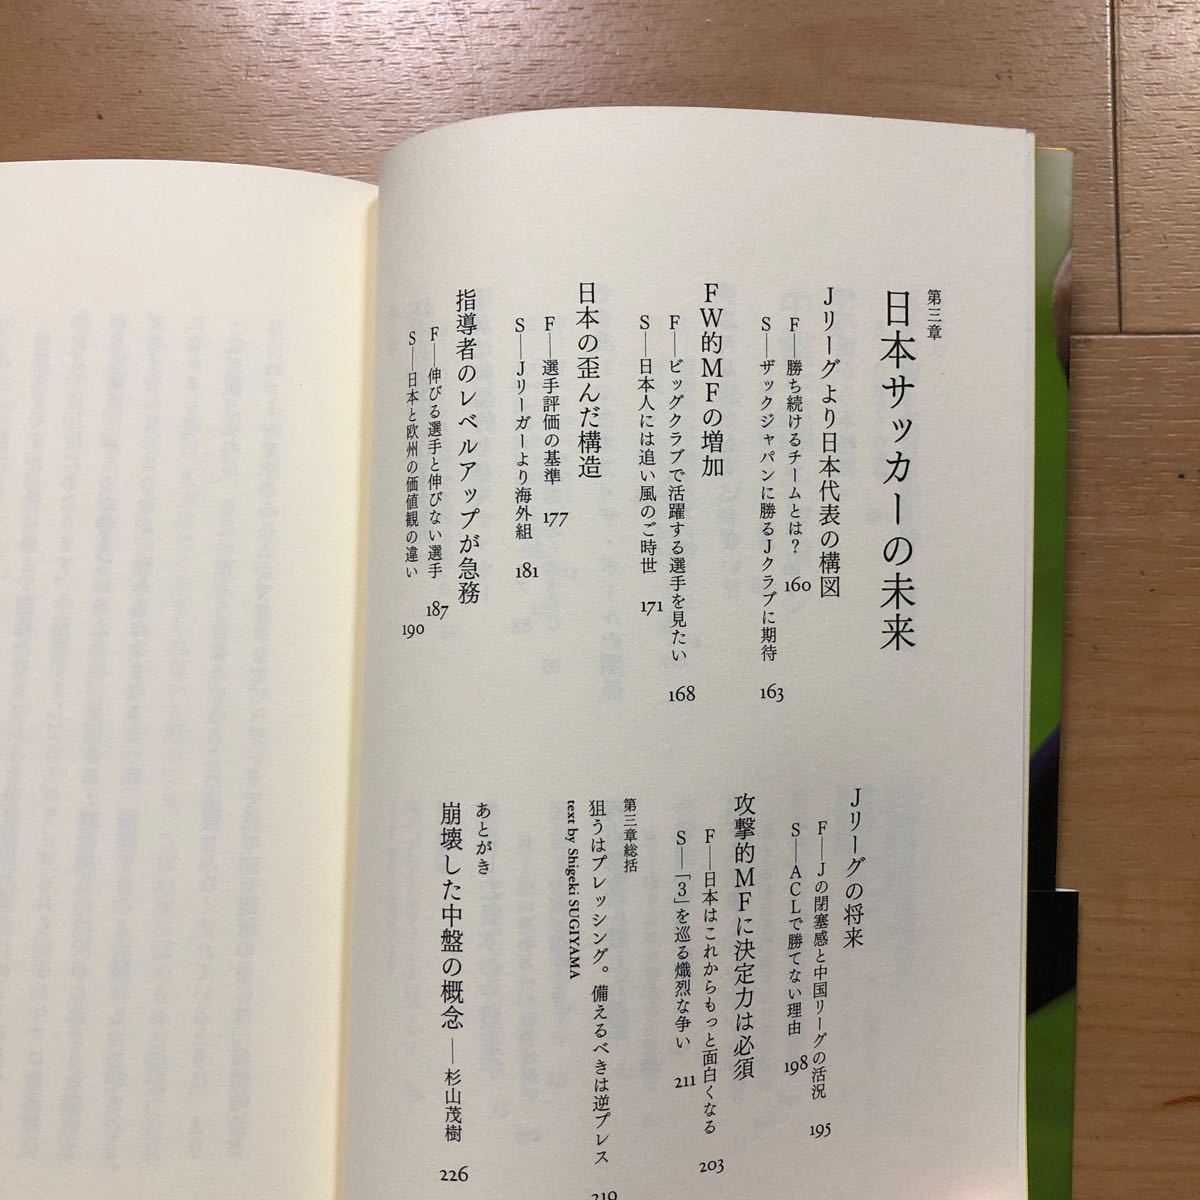 第三章
日本サッカーの未来
Jリーグより日本代表の構図
F──勝ち続けるチームとは? 160
S──ザックジャパンに勝るJクラブに期待 163
FW的MFの増加
F──ビッグクラブで活躍する選手を見たい 168
S──日本人には追い風のご時世 171
日本の歪んだ構造
F──選手評価の基準 177
S──Jリーガーより海外組 181
指導者のレベルアップが急務
F──伸びる選手と伸びない選手 187
S──日本と欧州の価値観の違い 190
Jリーグの将来
F──Jの閉塞感と中国リーグの活況 195
S──ACLで勝てない理由 198
攻撃的MFに決定力は必須
F──日本はこれからもっと面白くなる 203
S──「3」を巡る熾烈な争い 211
第三章総括
狙うはプレッシング。備えるべきは逆プレス 219
text by Shigeki SUGIYAMA
あとがき
崩壊した中盤の概念──杉山茂樹 226